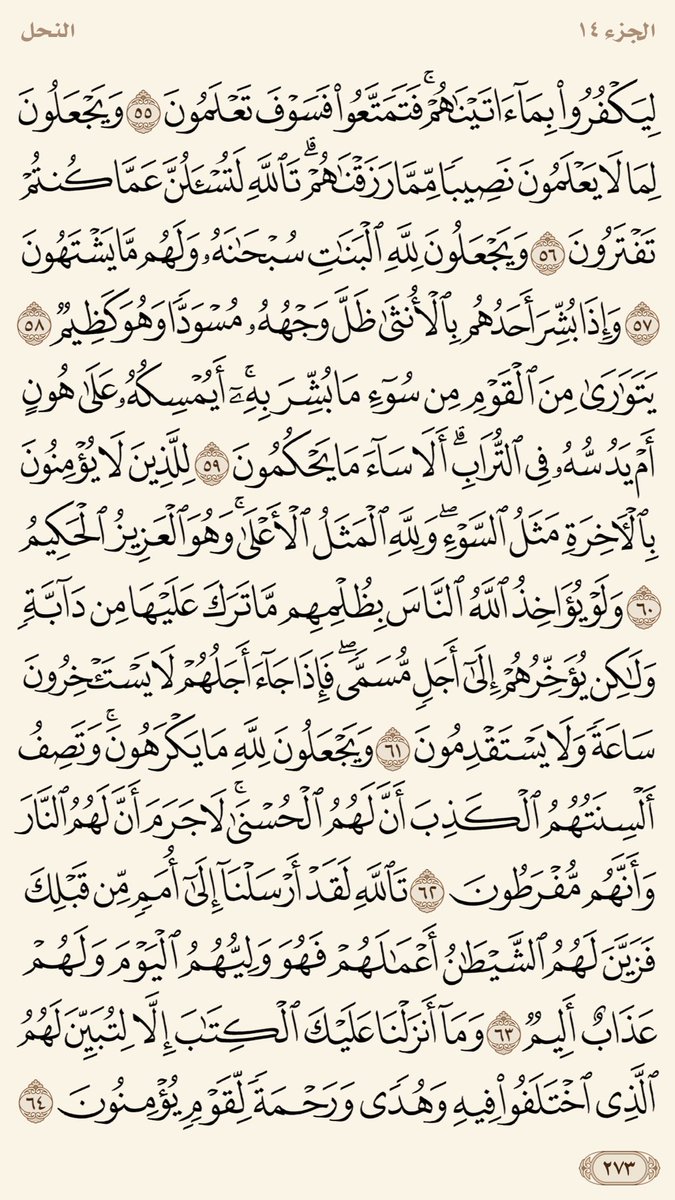 الجزء ١٤
النحل
لِيَكْفُرُوا۟ بِمَآ ءَاتَيْنَـٰهُمْ ۚ فَتَمَتَّعُوا۟ فَسَوْفَ تَعْلَمُونَ ٥٥ وَيَجْعَلُونَ
لِمَا لَا يَعْلَمُونَ نَصِيبًا مِّمَّا رَزَقْنَـٰهُمْ ۗ تَٱللَّهِ لَتُسْـَٔلُنَّ عَمَّا كُنتُمْ
تَفْتَرُونَ ٥٦ وَيَجْعَلُونَ لِلَّهِ ٱلْبَنَـٰتِ سُبْحَـٰنَهُۥ وَلَهُم مَّا يَشْتَهُونَ
٥٧ وَإِذَا بُشِّرَ أَحَدُهُم بِٱلْأُنثَىٰ ظَلَّ وَجْهُهُۥ مُسْوَدًّا وَهُوَ كَظِيمٌ ٥٨
يَتَوَٰرَىٰ مِنَ ٱلْقَوْمِ مِن سُوٓءِ مَا بُشِّرَ بِهِۦٓ ۚ أَيُمْسِكُهُۥ عَلَىٰ هُونٍ
أَمْ يَدُسُّهُۥ فِى ٱلتُّرَابِ ۗ أَلَا سَآءَ مَا يَحْكُمُونَ ٥٩ لِلَّذِينَ لَا يُؤْمِنُونَ
بِٱلْـَٔاخِرَةِ مَثَلُ ٱلسَّوْءِ ۖ وَلِلَّهِ ٱلْمَثَلُ ٱلْأَعْلَىٰ ۚ وَهُوَ ٱلْعَزِيزُ ٱلْحَكِيمُ
٦٠ وَلَوْ يُؤَاخِذُ ٱللَّهُ ٱلنَّاسَ بِظُلْمِهِم مَّا تَرَكَ عَلَيْهَا مِن دَآبَّةٍ
وَلَـٰكِن يُؤَخِّرُهُمْ إِلَىٰٓ أَجَلٍ مُّسَمًّى ۖ فَإِذَا جَآءَ أَجَلُهُمْ لَا يَسْتَـْٔخِرُونَ
سَاعَةً وَلَا يَسْتَقْدِمُونَ ٦١ وَيَجْعَلُونَ لِلَّهِ مَا يَكْرَهُونَ ۚ وَتَصِفُ
أَلْسِنَتُهُمُ ٱلْكَذِبَ أَنَّ لَهُمُ ٱلْحُسْنَىٰ ۚ لَا جَرَمَ أَنَّ لَهُمُ ٱلنَّارَ
وَأَنَّهُم مُّفْرَطُونَ ٦٢ تَٱللَّهِ لَقَدْ أَرْسَلْنَآ إِلَىٰٓ أُمَمٍ مِّن قَبْلِكَ
فَزَيَّنَ لَهُمُ ٱلشَّيْطَـٰنُ أَعْمَـٰلَهُمْ فَهُوَ وَلِيُّهُمُ ٱلْيَوْمَ وَلَهُمْ
عَذَابٌ أَلِيمٌ ٦٣ وَمَآ أَنزَلْنَا عَلَيْكَ ٱلْكِتَـٰبَ إِلَّا لِتُبَيِّنَ لَهُمُ
ٱلَّذِى ٱخْتَلَفُوا۟ فِيهِ وَهُدًى وَرَحْمَةً لِّقَوْمٍ يُؤْمِنُونَ ٦٤
٢٧٣